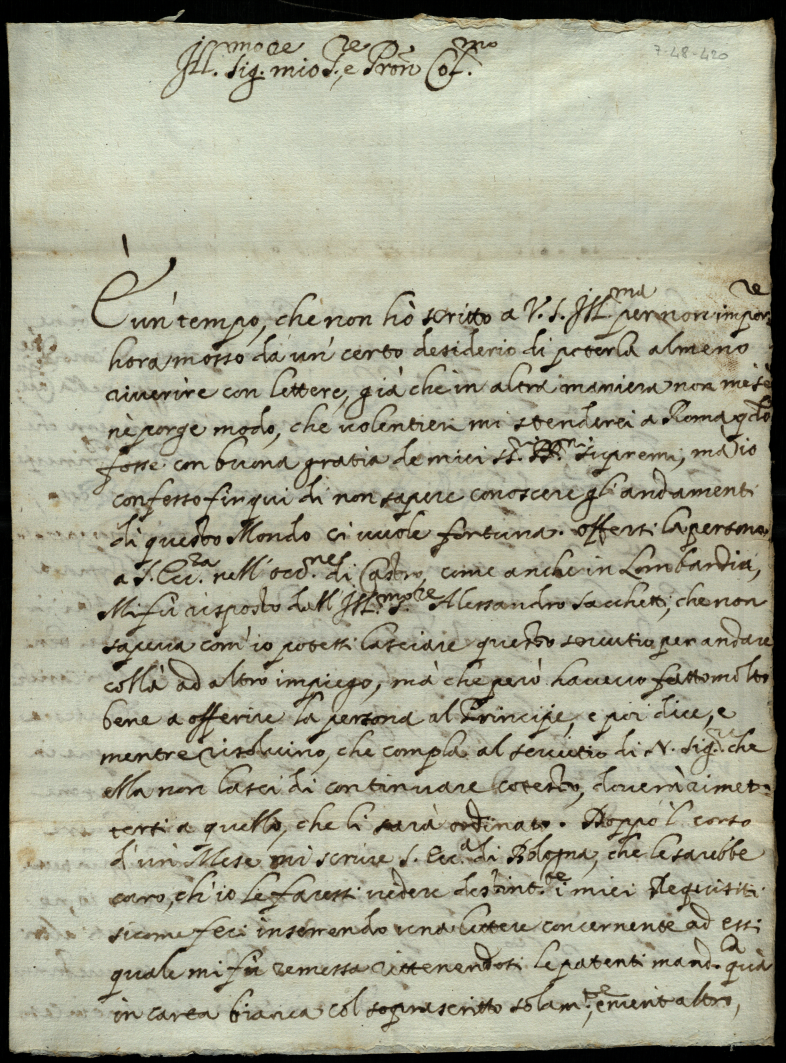 7-48-420
Ill.more Sig.re mio S.re e Pron Col.mo
È un tempo, che non hò scritto a V. S. Ill.ma per non impor.re
hora mosso da un' certo desiderio di poterla almeno
riverire con lettere, già che in altra maniera non mi sè
nè porge modo, che volentieri mi stenderei a Roma qdo
fosse con buona gratia de miei SS.ri Supremi, mà io
confesso fin qui di non sapere conoscere gl'andamenti
di questo Mondo ci vuole fortuna. offersi la persona
a S. Ecc.za nell'occ.nes di Castro, come anche in Lombardia,
Mi fù risposto dall' Ill.mo S.re Alessandro Sacchetti, che non
sapeva com' io potessi lasciare questo servitio per andare
collà ad altro impiego, mà che però havevo fatto molto
bene a offerire la persona al Principe, e poi dice, e
mentre risolvino, che compla al servitio di N. Sig.re che
ella non lasci di continuare cotesto, doverà rimet-
tersi a quello, che li sarà ordinato. Doppò 'l corso
d'un Mese mi scrive S. Ecc.a di Bologna, che le sarebbe
caro, ch'io le facessi vedere destint.te i miei Requisiti
sicome feci inserendo una lettere concernente ad essi
quale mi fù remessa rittenendosi le patenti mand.la quà
in carta bianca col soprascritto solam.te, e nient altro,